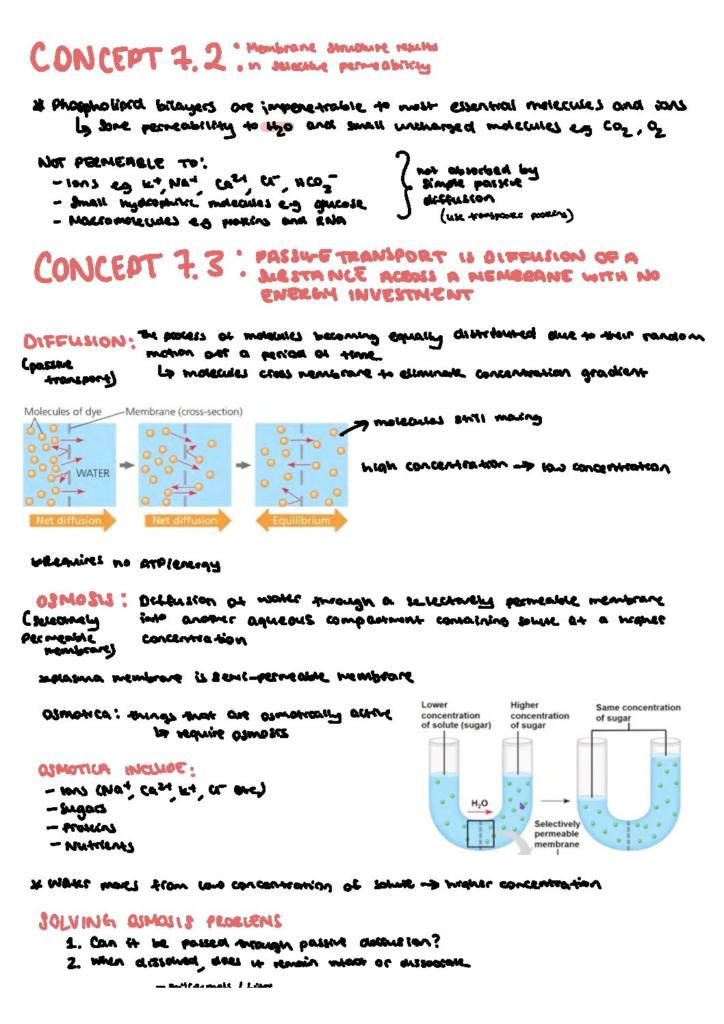 CONCEPT 7.2 : Membrane structure results
in selective permeability
* Phospholipid bilayers are impenetrable to most essential molecules and ions
↳ some permeability to H₂O and small uncharged molecules eg CO₂, O₂
NOT PERMEABLE TO:
- Ions eg K⁺, Na⁺, Ca²⁺, Cl⁻, HCO₃⁻
- Small hydrophilic molecules e.g glucose
- Macromolecules eg proteins and RNA
not absorbed by
simple passive
diffusion
(use transporter proteins)
CONCEPT 7.3 : PASSIVE TRANSPORT IS DIFFUSION OF A
SUBSTANCE ACROSS A MEMBRANE WITH NO
ENERGY INVESTMENT
DIFFUSION: The process of molecules becoming equally distributed due to their random
(passive motion over a period of time.
transport) ↳ molecules cross membrane to eliminate concentration gradient
Molecules of dye Membrane (cross-section)
→ molecules still moving
WATER
high concentration → low concentration
Net diffusion Net diffusion Equilibrium
*Requires no ATP/energy
OSMOSIS: Diffusion of water through a selectively permeable membrane
(selectively into another aqueous compartment containing solute at a higher
permeable concentration
membranes)
*plasma membrane is semi-permeable membrane
Osmotica: things that are osmotically active
↳ require osmosis
Lower
concentration
of solute (sugar)
Higher
concentration
of sugar
Same concentration
of sugar
H₂O
Selectively
permeable
membrane
OSMOTICA INCLUDE:
- Ions (Na⁺, Ca²⁺, K⁺, Cl⁻ etc)
- Sugars
- Proteins
- Nutrients
* Water moves from low concentration of solute → higher concentration
SOLVING OSMOSIS PROBLEMS
1. Can it be passed through passive diffusion?
2. When dissolved, does it remain intact or dissociate